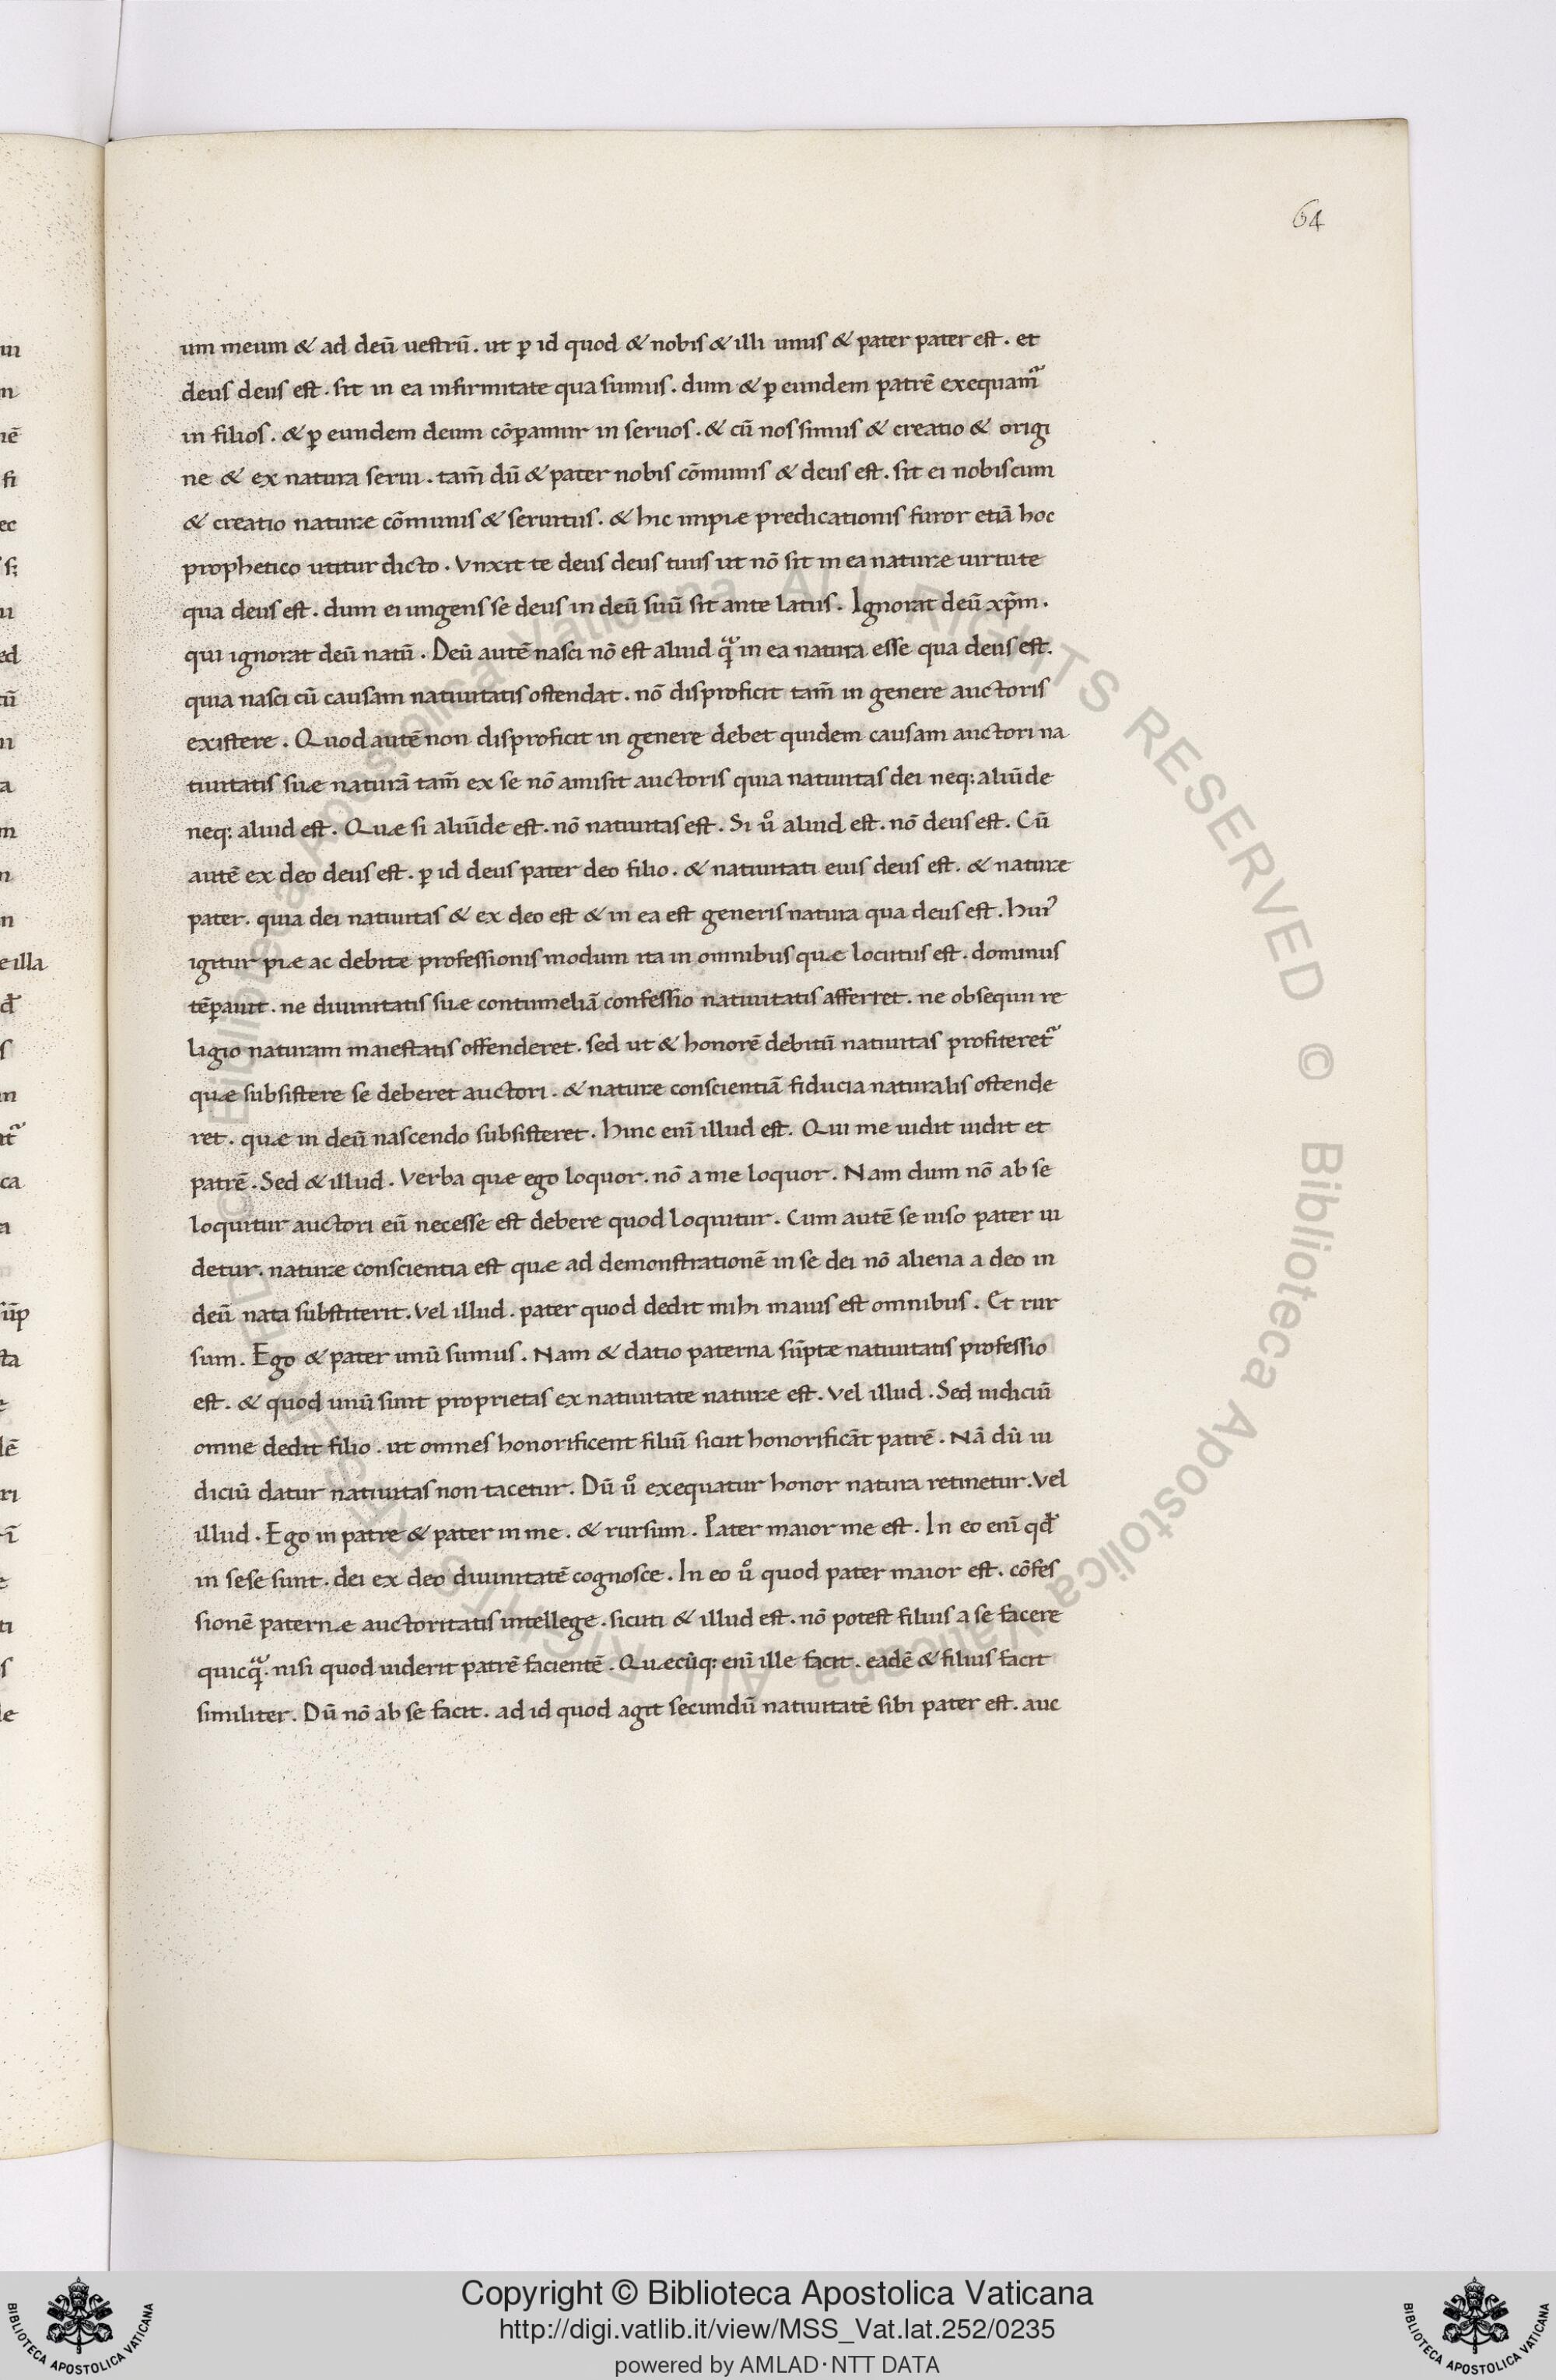 64
um meum & ad deū uestrū. ut p̱ id quod & nobis & illi unus & pater pater est. et
deus deus est. sit in ea infirmitate qua sumus. dum & p̱ eundem patrē exequam̄
in filios. & p̱ eundem deum cōp̱amur in seruos. & cū nos simus & creatio & origi
ne & ex natura serui. tam̄ dū & pater nobis cōmunis & deus est. sit ei nobiscum
& creatio naturæ cōmunis & seruitus. & hic impiæ predicationis furor etiā hoc
prophetico utitur dicto. Vnxit te deus deus tuus ut nō sit in ea naturæ uirtute
qua deus est. dum ei ungens se deus in deū suū sit ante latus. Ignorat deū xp̄m.
qui ignorat deū natū. Deū autē nasci nō est aliud qᷓ in ea natura esse qua deus est.
quia nasci cū causam natiuitatis ostendat. nō disproficit tam̄ in genere auctoris
existere. Quod autē non disproficit in genere debet quidem causam auctori na
tiuitatis suæ naturā tam̄ ex se nō amisit auctoris quia natiuitas dei neq; aliūde
neq; aliud est. Quæ si aliūde est. nō natiuitas est. Si uͦ aliud est. nō deus est. Cū
autē ex deo deus est. p̱ id deus pater deo filio. & natiuitati eius deus est. & naturæ
pater. quia dei natiuitas & ex deo est & in ea est generis natura qua deus est. Huiꝰ
igitur piæ ac debitæ professionis modum ita in omnibus quæ locutus est. dominus
tēp̱auit. ne diuinitatis suæ contumeliā confessio natiuitatis afferret. ne obsequii re
ligio naturam maiestatis offenderet. sed ut & honorē debitū natiuitas profiteretᷓ
quæ subsistere se deberet auctori. & naturæ conscientiā fiducia naturalis ostende
ret. quæ in deū nascendo subsisteret. Hinc enī illud est. Qui me uidit uidit et
patrē. Sed & illud. Verba quæ ego loquor. nō a me loquor. Nam dum nō ab se
loquitur auctori eū necesse est debere quod loquitur. Cum autē se uiso pater ui
detur. naturæ conscientia est quæ ad demonstrationē in se dei nō aliena a deo in
deū nata substiterit. Vel illud. pater quod dedit mihi maius est omnibus. Et rur
sum. Ego & pater unū sumus. Nam & datio paterna sūptæ natiuitatis professio
est. & quod unū sunt proprietas ex natiuitate naturæ est. Vel illud. Sed iudiciū
omne dedit filio. ut omnes honorificent filiū sicut honorificāt patrē. Nā dū iu
diciū datur natiuitas non tacetur. Dū uͦ exequatur honor natura retinetur. Vel
illud. Ego in patre & pater in me. & rursum. Pater maior me est. In eo enī qđ
in sese sunt. dei ex deo diuinitatē cognosce. In eo uͦ quod pater maior est. cōfes
sionē paternæ auctoritatis intellege. sicuti & illud est. nō potest filius a se facere
quicqᷓ. nisi quod uiderit patrē facientē. Quæcūq; enī ille facit. eadē & filius facit
similiter. Dū nō ab se facit. ad id quod agit secundū natiuitatē sibi pater est. auc
Copyright © Biblioteca Apostolica Vaticana
http://digi.vatlib.it/view/MSS_Vat.lat.252/0235
powered by AMLAD·NTT DATA